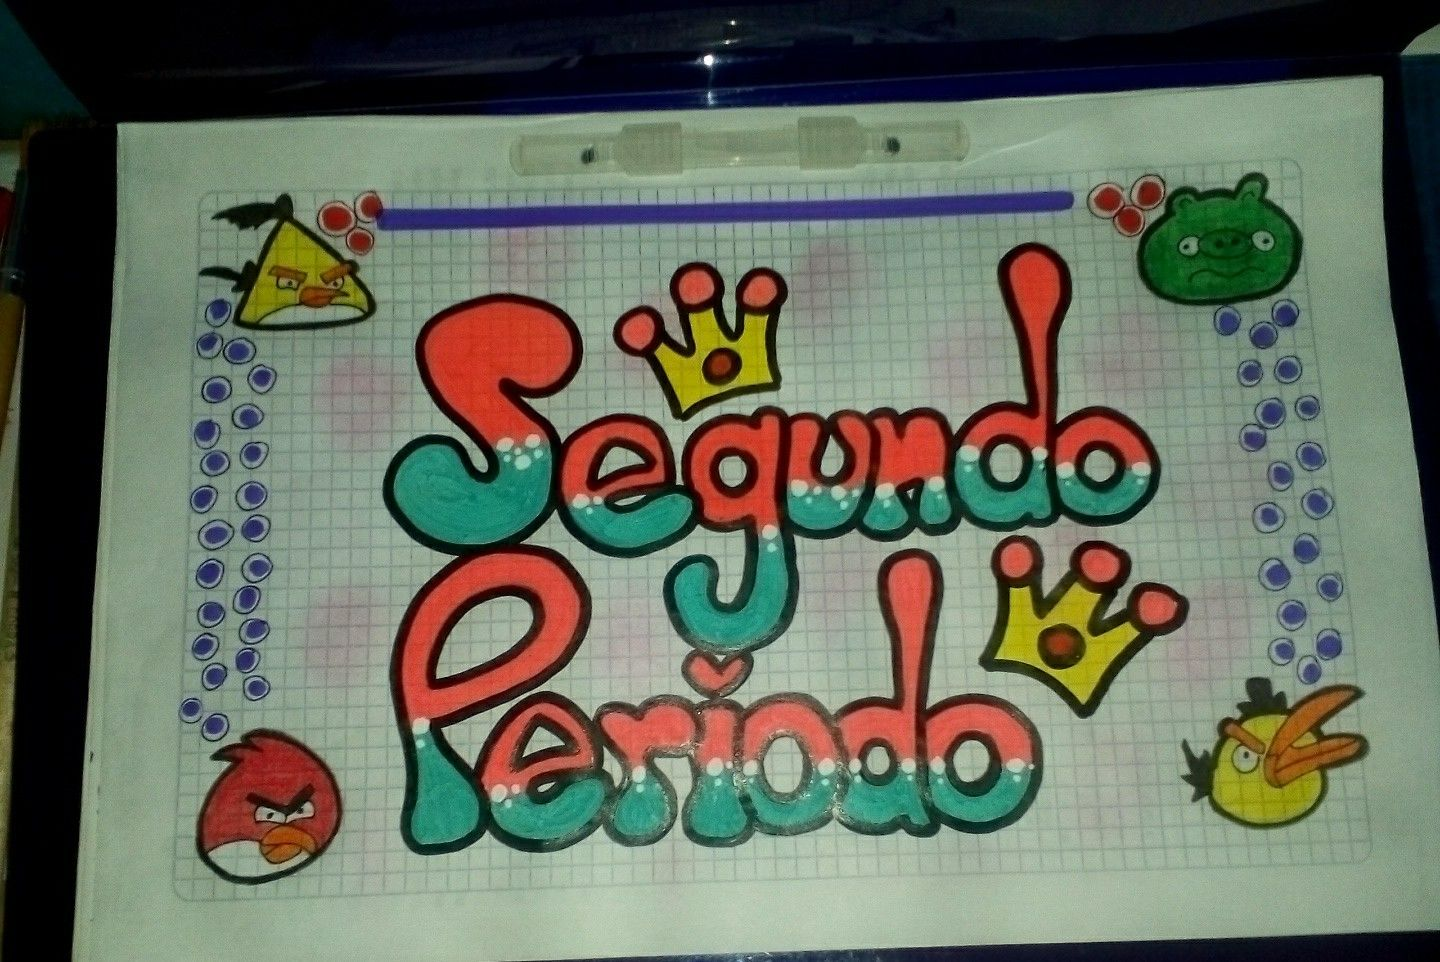 Segundo
Periodo